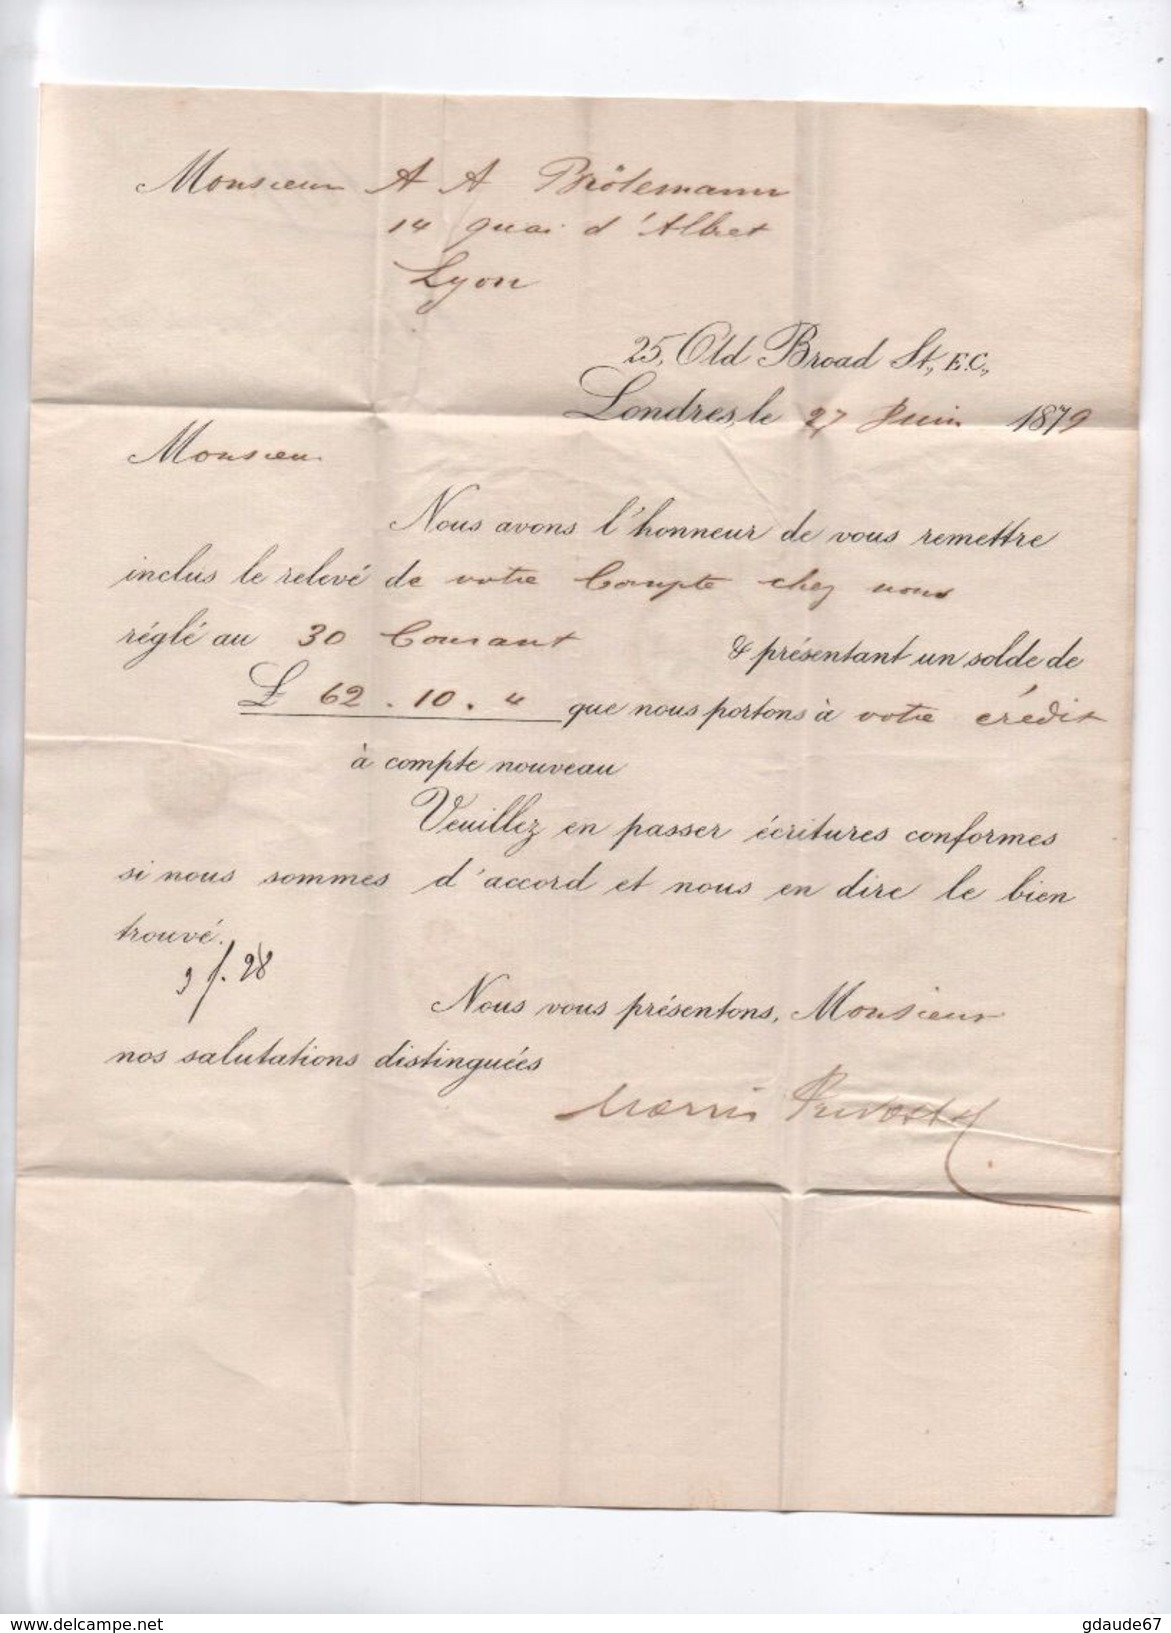 Monsieur A A Brölemann
14 quai d'Albret
Lyon
25, Old Broad St., E.C.,
Londres, le 27 Juin 1879
Monsieur
Nous avons l'honneur de vous remettre
inclus le relevé de votre Compte chez nous
réglé au 30 Courant & présentant un solde de
£ 62 . 10 . " que nous portons à votre crédit
à compte nouveau
Veuillez en passer écritures conformes
si nous sommes d'accord et nous en dire le bien
trouvé.
Nous vous présentons, Monsieur
nos salutations distinguées
Morris Prevost
gdaude67